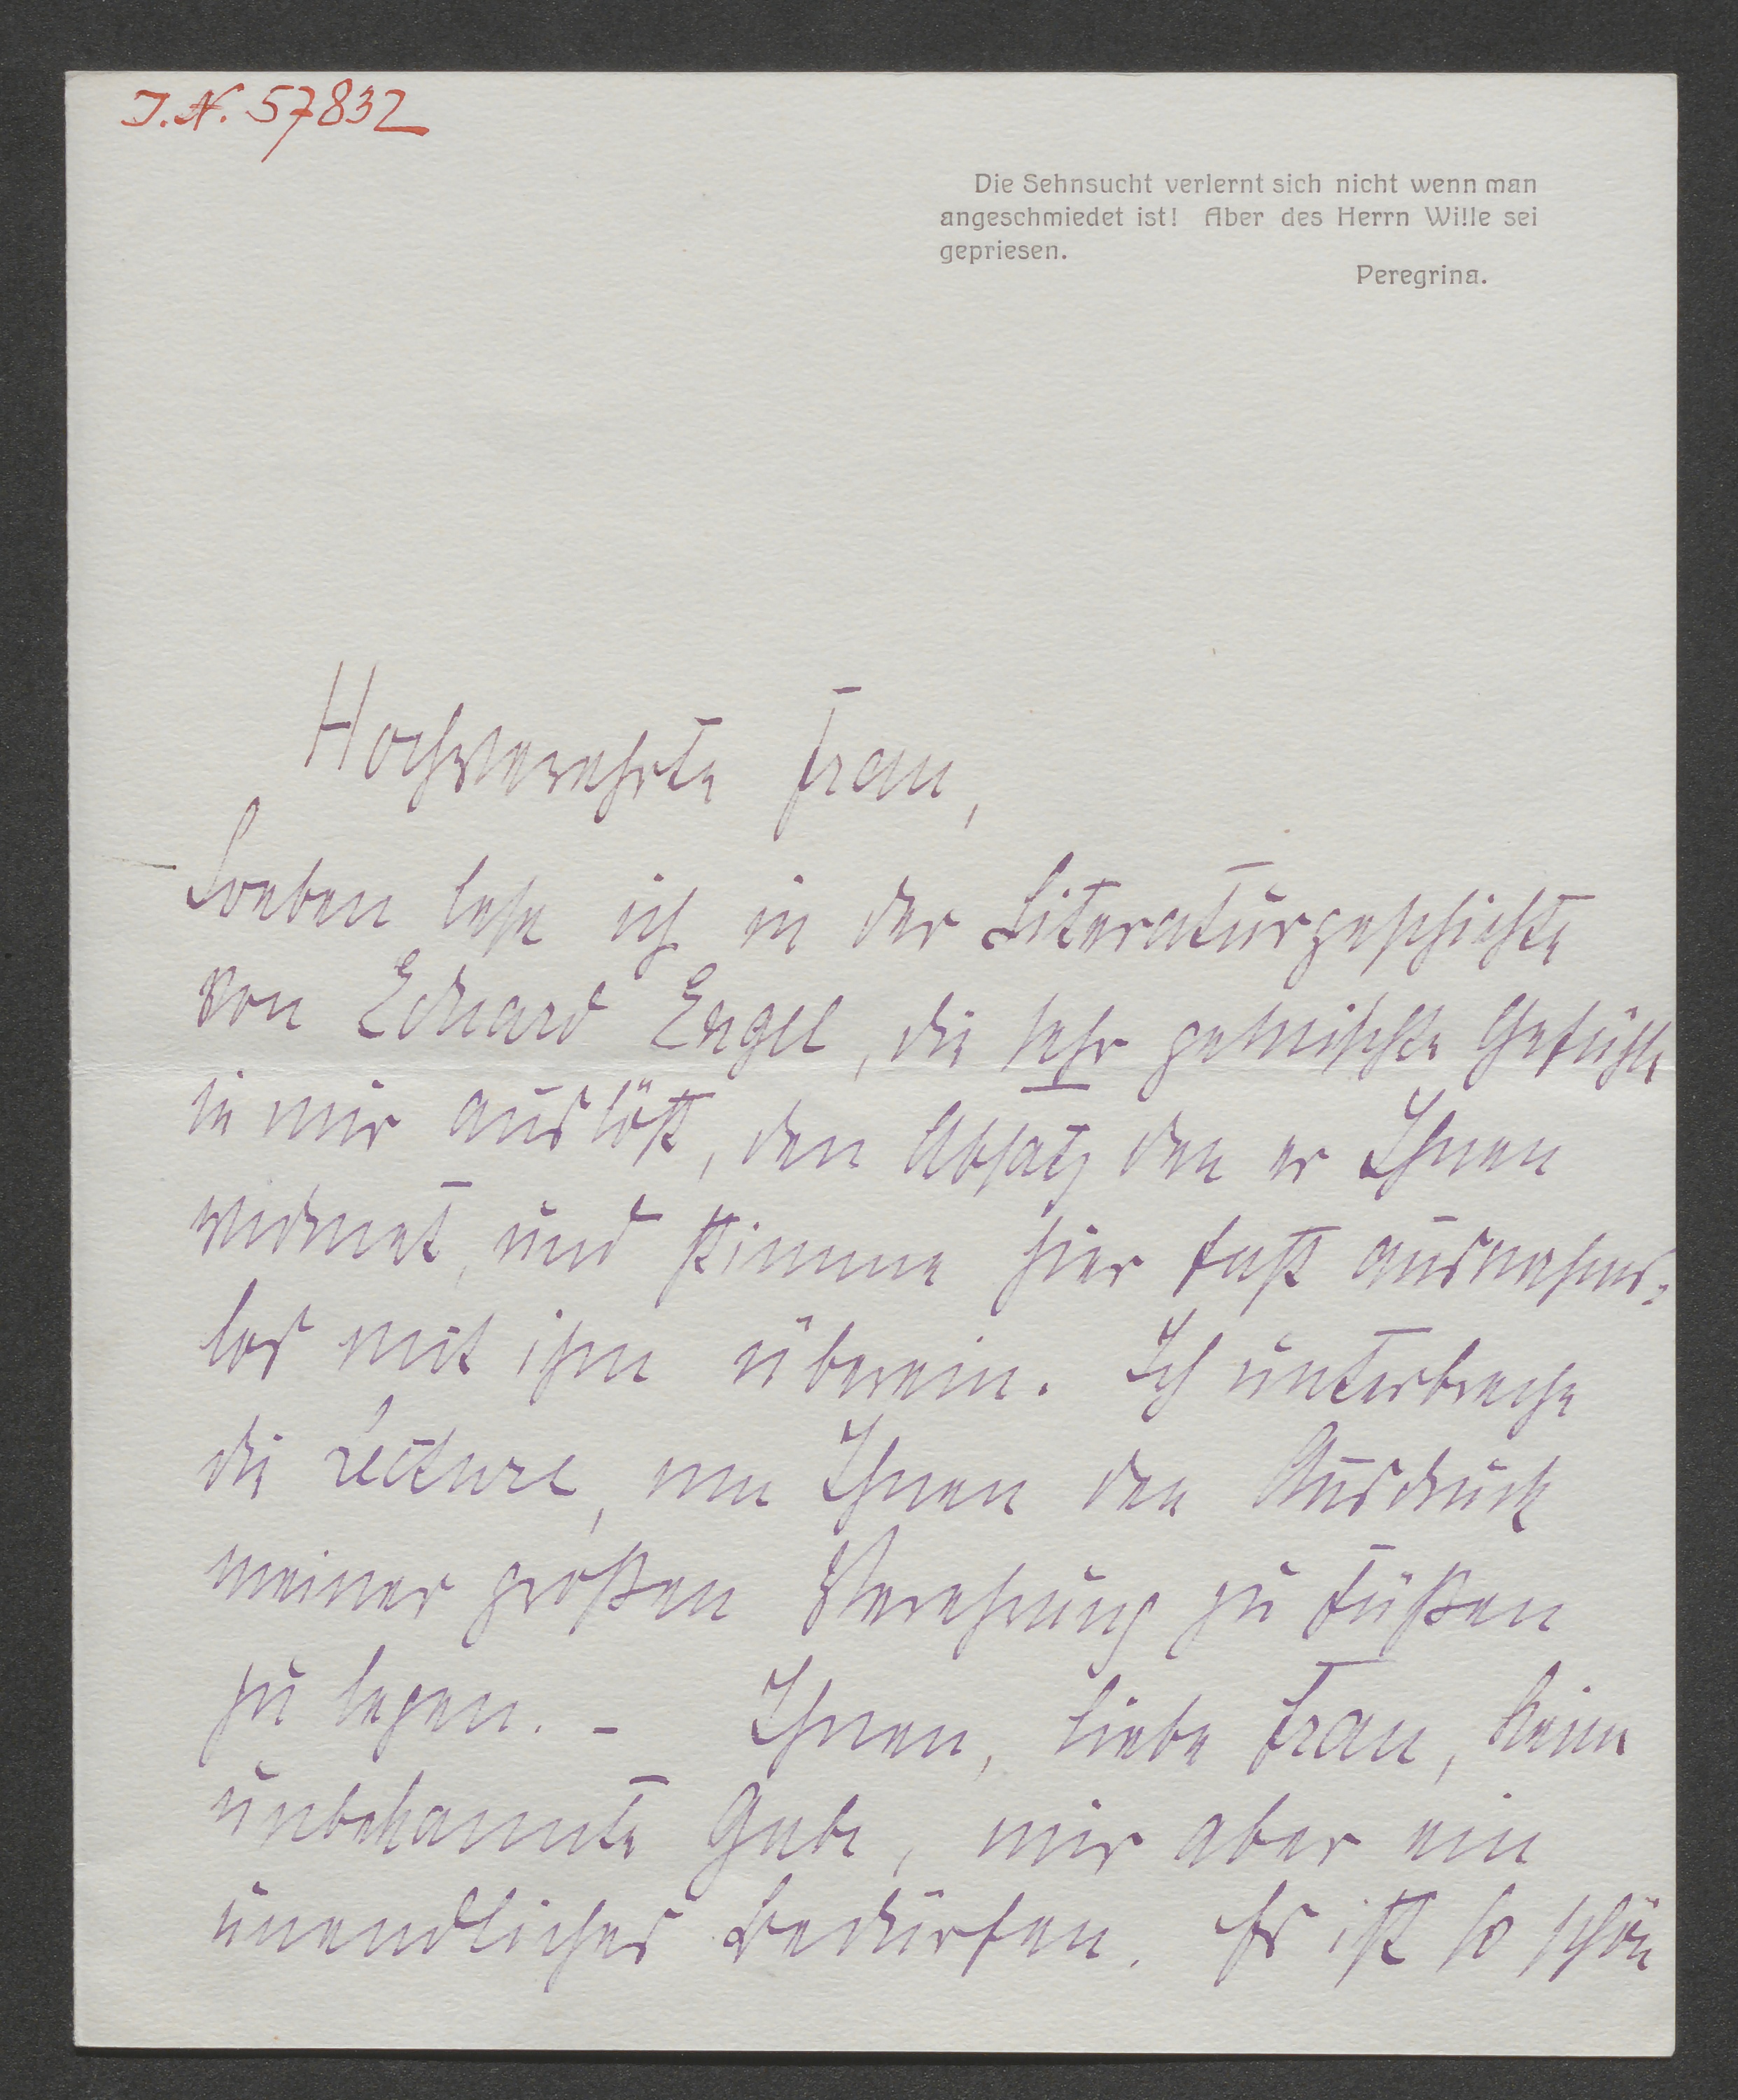 J.N. 57832
Die Sehnsucht verlernt sich nicht wenn man
angeschmiedet ist! Aber des Herrn Wille sei
gepriesen.
Peregrina.
Hochverehrte Frau,
Soeben lese ich in der Literaturgeschichte
von Eduard Engel, die sehr gemischte Gefühle
in mir auslöst, den Absatz den er Ihnen
widmet, und stimme hier fast ausnahms-
los mit ihm überein. Ich unterbreche
die Lecture, um Ihnen den Ausdruck
meiner großen Verehrung zu Füßen
zu legen. – Ihnen, liebe Frau, keine
unbekannte Gabe, mir aber ein
unendliches Bedürfen. Es ist so schön